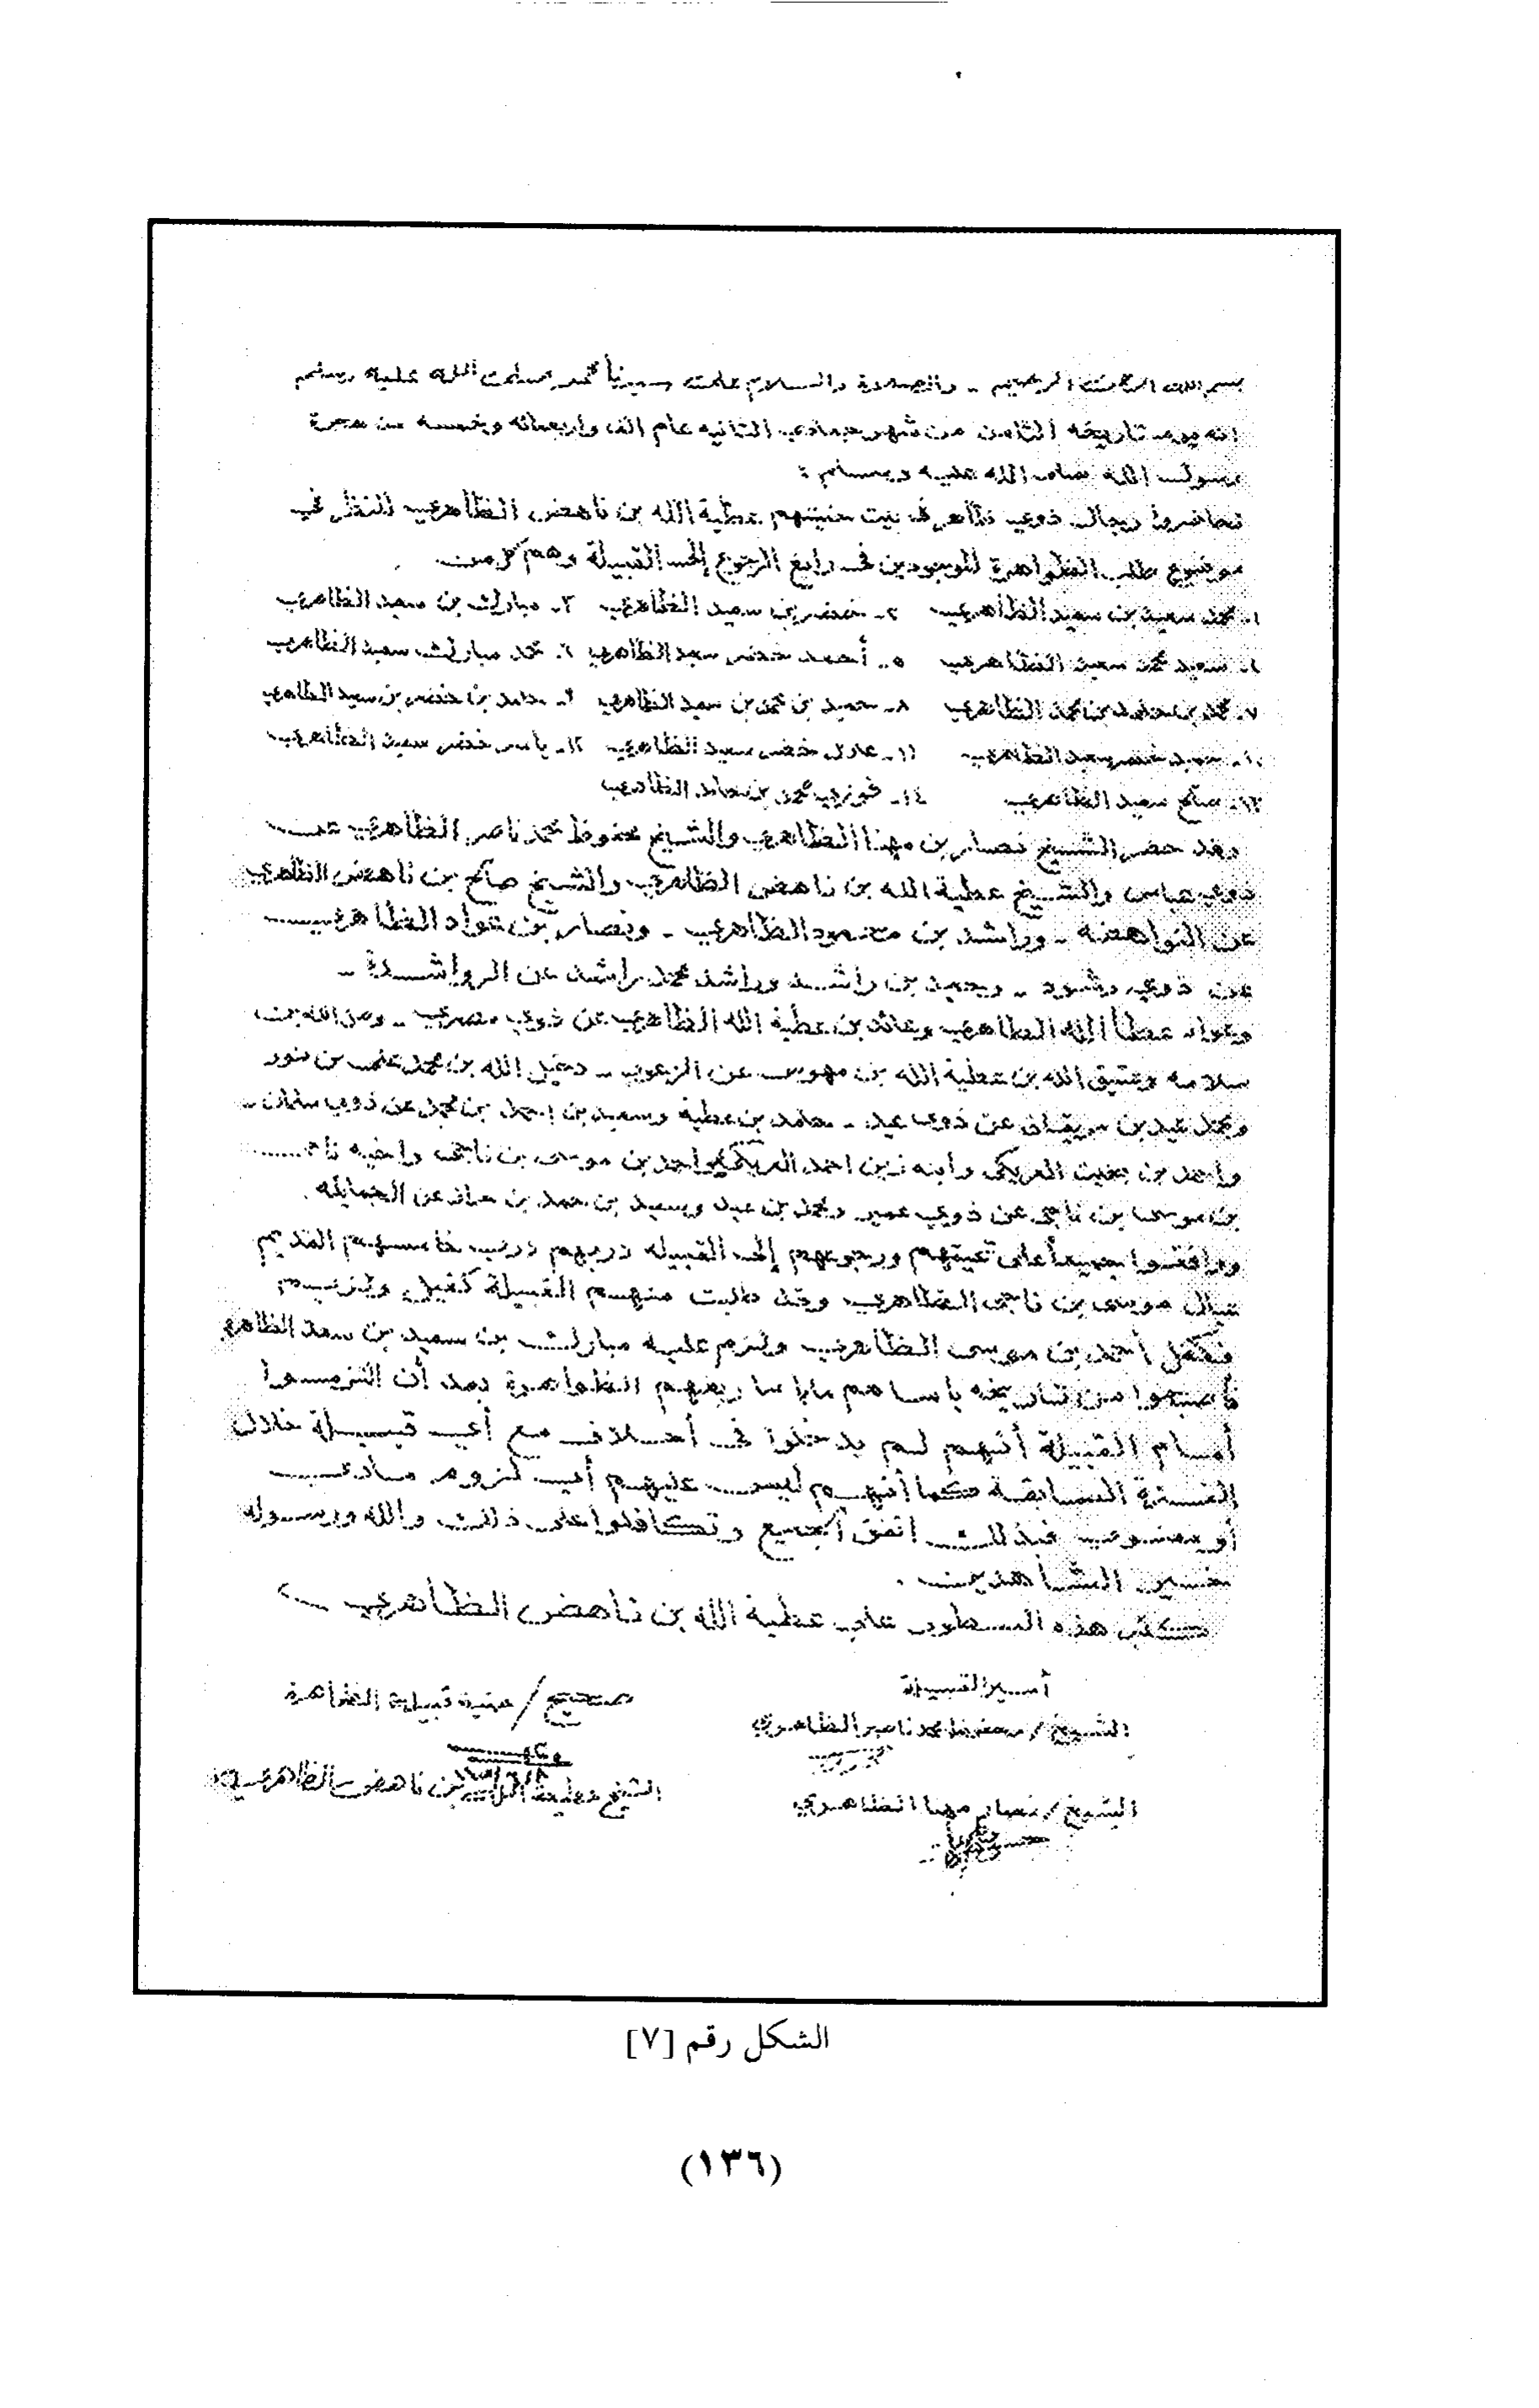 بسم الله الرحمن الرحيم - والصلاة والسلام على سيدنا محمد صلى الله عليه وسلم
انه يوم تاريخه الثامن من شهر جمادى الثانيه عام الف واربعمائه وخمسه من هجرة
رسول الله صلى الله عليه وسلم :
تحاضروا رجال ذوي ظاهر في بيت منيتهم عطية الله بن ناهض الظاهري للنظر في
موضوع طلب الظواهرة الموجودين في رابغ الرجوع إلى القبيلة وهم كل من
١- محمد سعيد بن سعيد الظاهري ٢- خضر بن سعيد الظاهري ٣- مبارك بن سعيد الظاهري
٤- سعيد محمد سعيد الظاهري ٥- أحمد خضر سعيد الظاهري ٦- محمد مبارك سعيد الظاهري
٧- محمد بن حامد بن محمد الظاهري ٨- حميد بن محمد بن سعيد الظاهري ٩- حامد بن خضر بن سعيد الظاهري
١٠- خضر سعيد الظاهري ١١- عادل خضر سعيد الظاهري ١٢- ياسر خضر سعيد الظاهري
١٣- صالح سعيد الظاهري ١٤- فوزي محمد بن حامد الظاهري
وقد حضر الشيخ نصار بن مهنا الظاهري والشيخ محفوظ محمد ناصر الظاهري عن
ذوي عباس والشيخ عطية الله بن ناهض الظاهري والشيخ صالح بن ناهض الظاهري
عن النواهضه - وراشد بن الظاهري - ونصار بن عواد الظاهري
عن ذوي - بن راشد وراشد محمد راشد عن الرواشدة -
وعواد عطا الله الظاهري وعائد بن عطية الله الظاهري عن ذوي -
سلامه وعتيق الله بن عطية الله بن عن - دخيل الله بن محمد بن
ومحمد عيد بن عن ذوي عيد - حامد بن عطية وسعيد بن احمد بن محمد عن ذوي سلمان -
واحمد بن بخيت وابنه زين احمد واحمد بن موسى بن ناجي
بن موسى بن ناجي عن ذوي عمير ومحمد بن عيد وسعيد بن حمد بن عن
ووافقوا جميعاً على ورجوعهم إلى القبيله دربهم درب القديم
عيال موسى بن ناجى الظاهري وقد طلبت منهم القبيلة كفيل
فكفل أحمد بن موسى الظاهري ولزم عليه مبارك بن سعيد بن سعد الظاهري
فأصبحوا من تاريخه الظواهرة بعد أن التزموا
أمام القبيلة أنهم لم يدخلوا في أحلاف مع أي قبيلة خلال
الفترة السابقة كما أنهم ليس عليهم أي لزوم مادي
أو معنوي فبذلك اتفق الجميع وتكافلوا على ذلك والله ورسوله
خير الشاهدين .
كتب هذه السطور على عطية الله بن ناهض الظاهري
أمير القبيلة
الشيخ / محفوظ محمد ناصر الظاهري
صحيح / قبيلة الظواهرة
الشيخ عطية الله بن ناهض الظاهري
الشيخ / نصار مهنا الظاهري
الشكل رقم [٧]
(١٣٦)